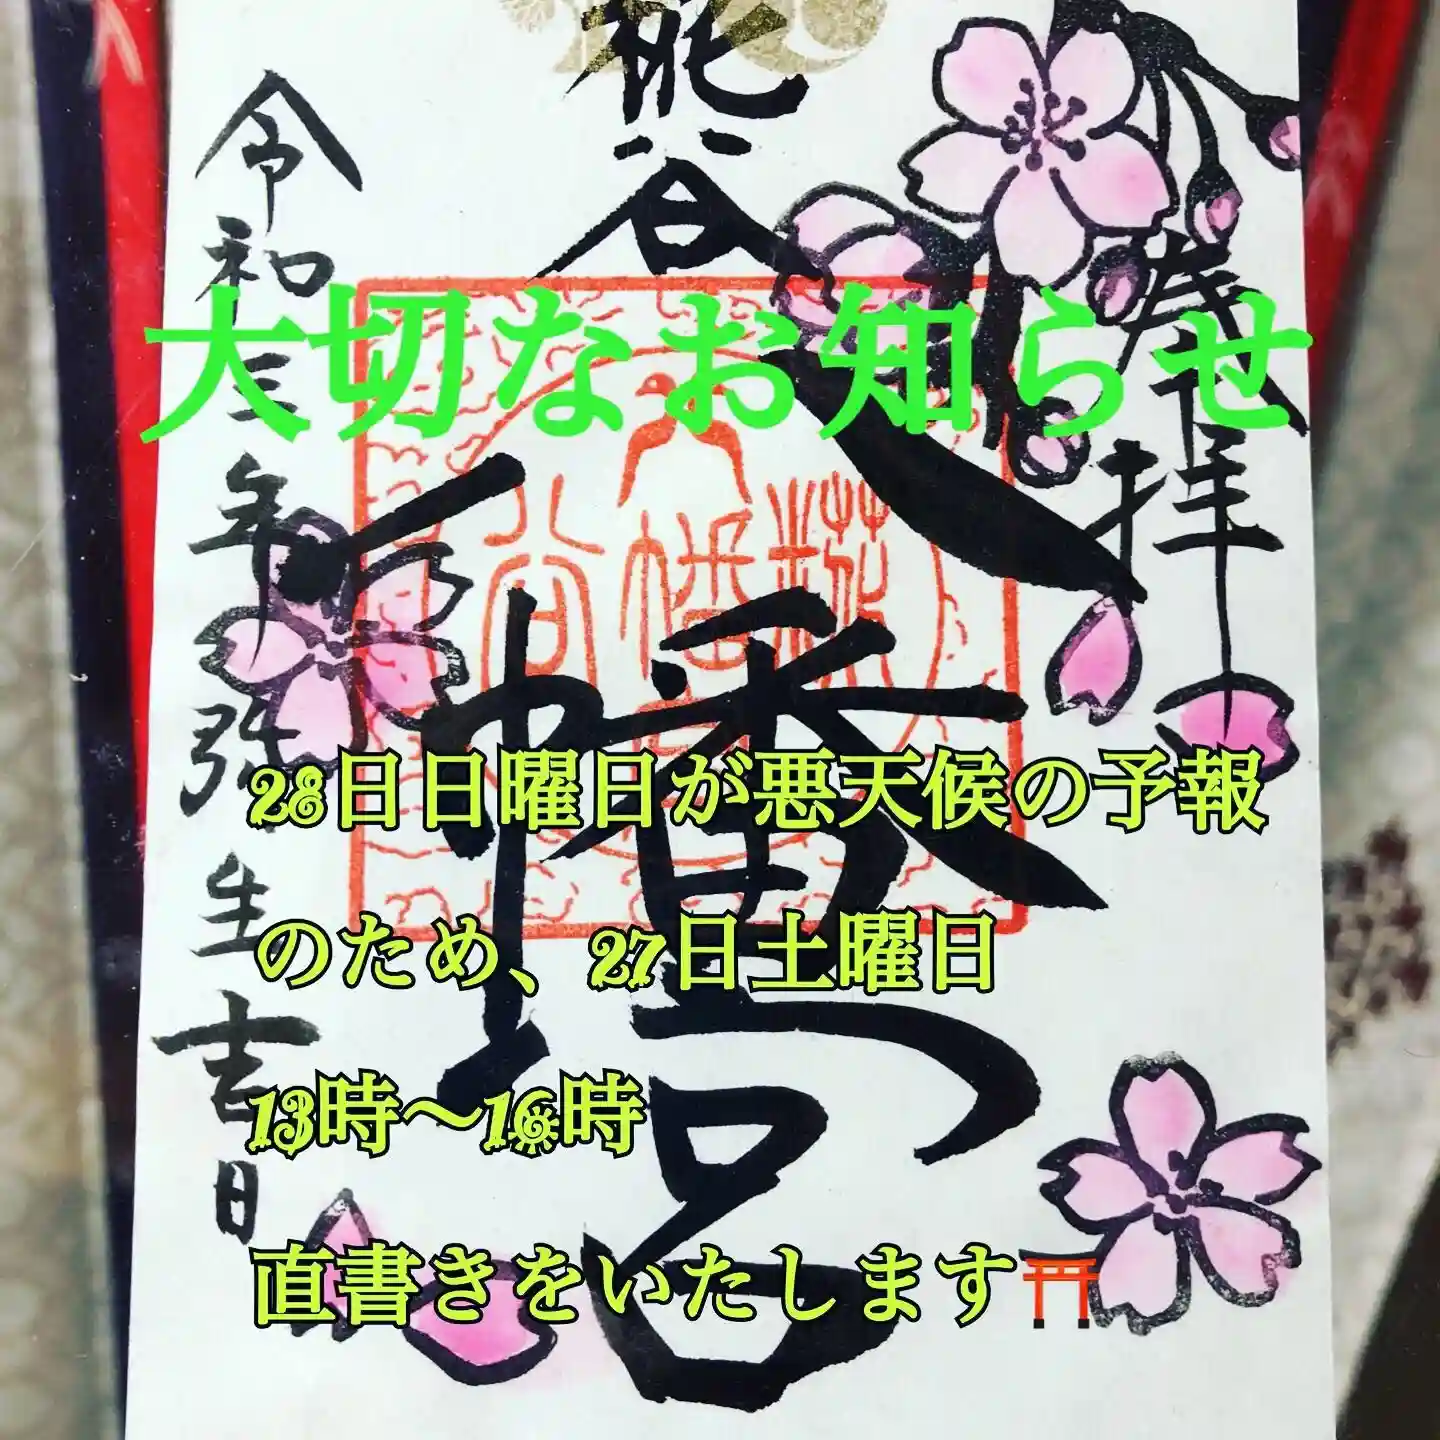 奉拝
糀谷
八幡宮
令和三年弥生吉日
大切なお知らせ
28日日曜日が悪天候の予報
のため、27日土曜日
13時〜16時
直書きをいたします⛩